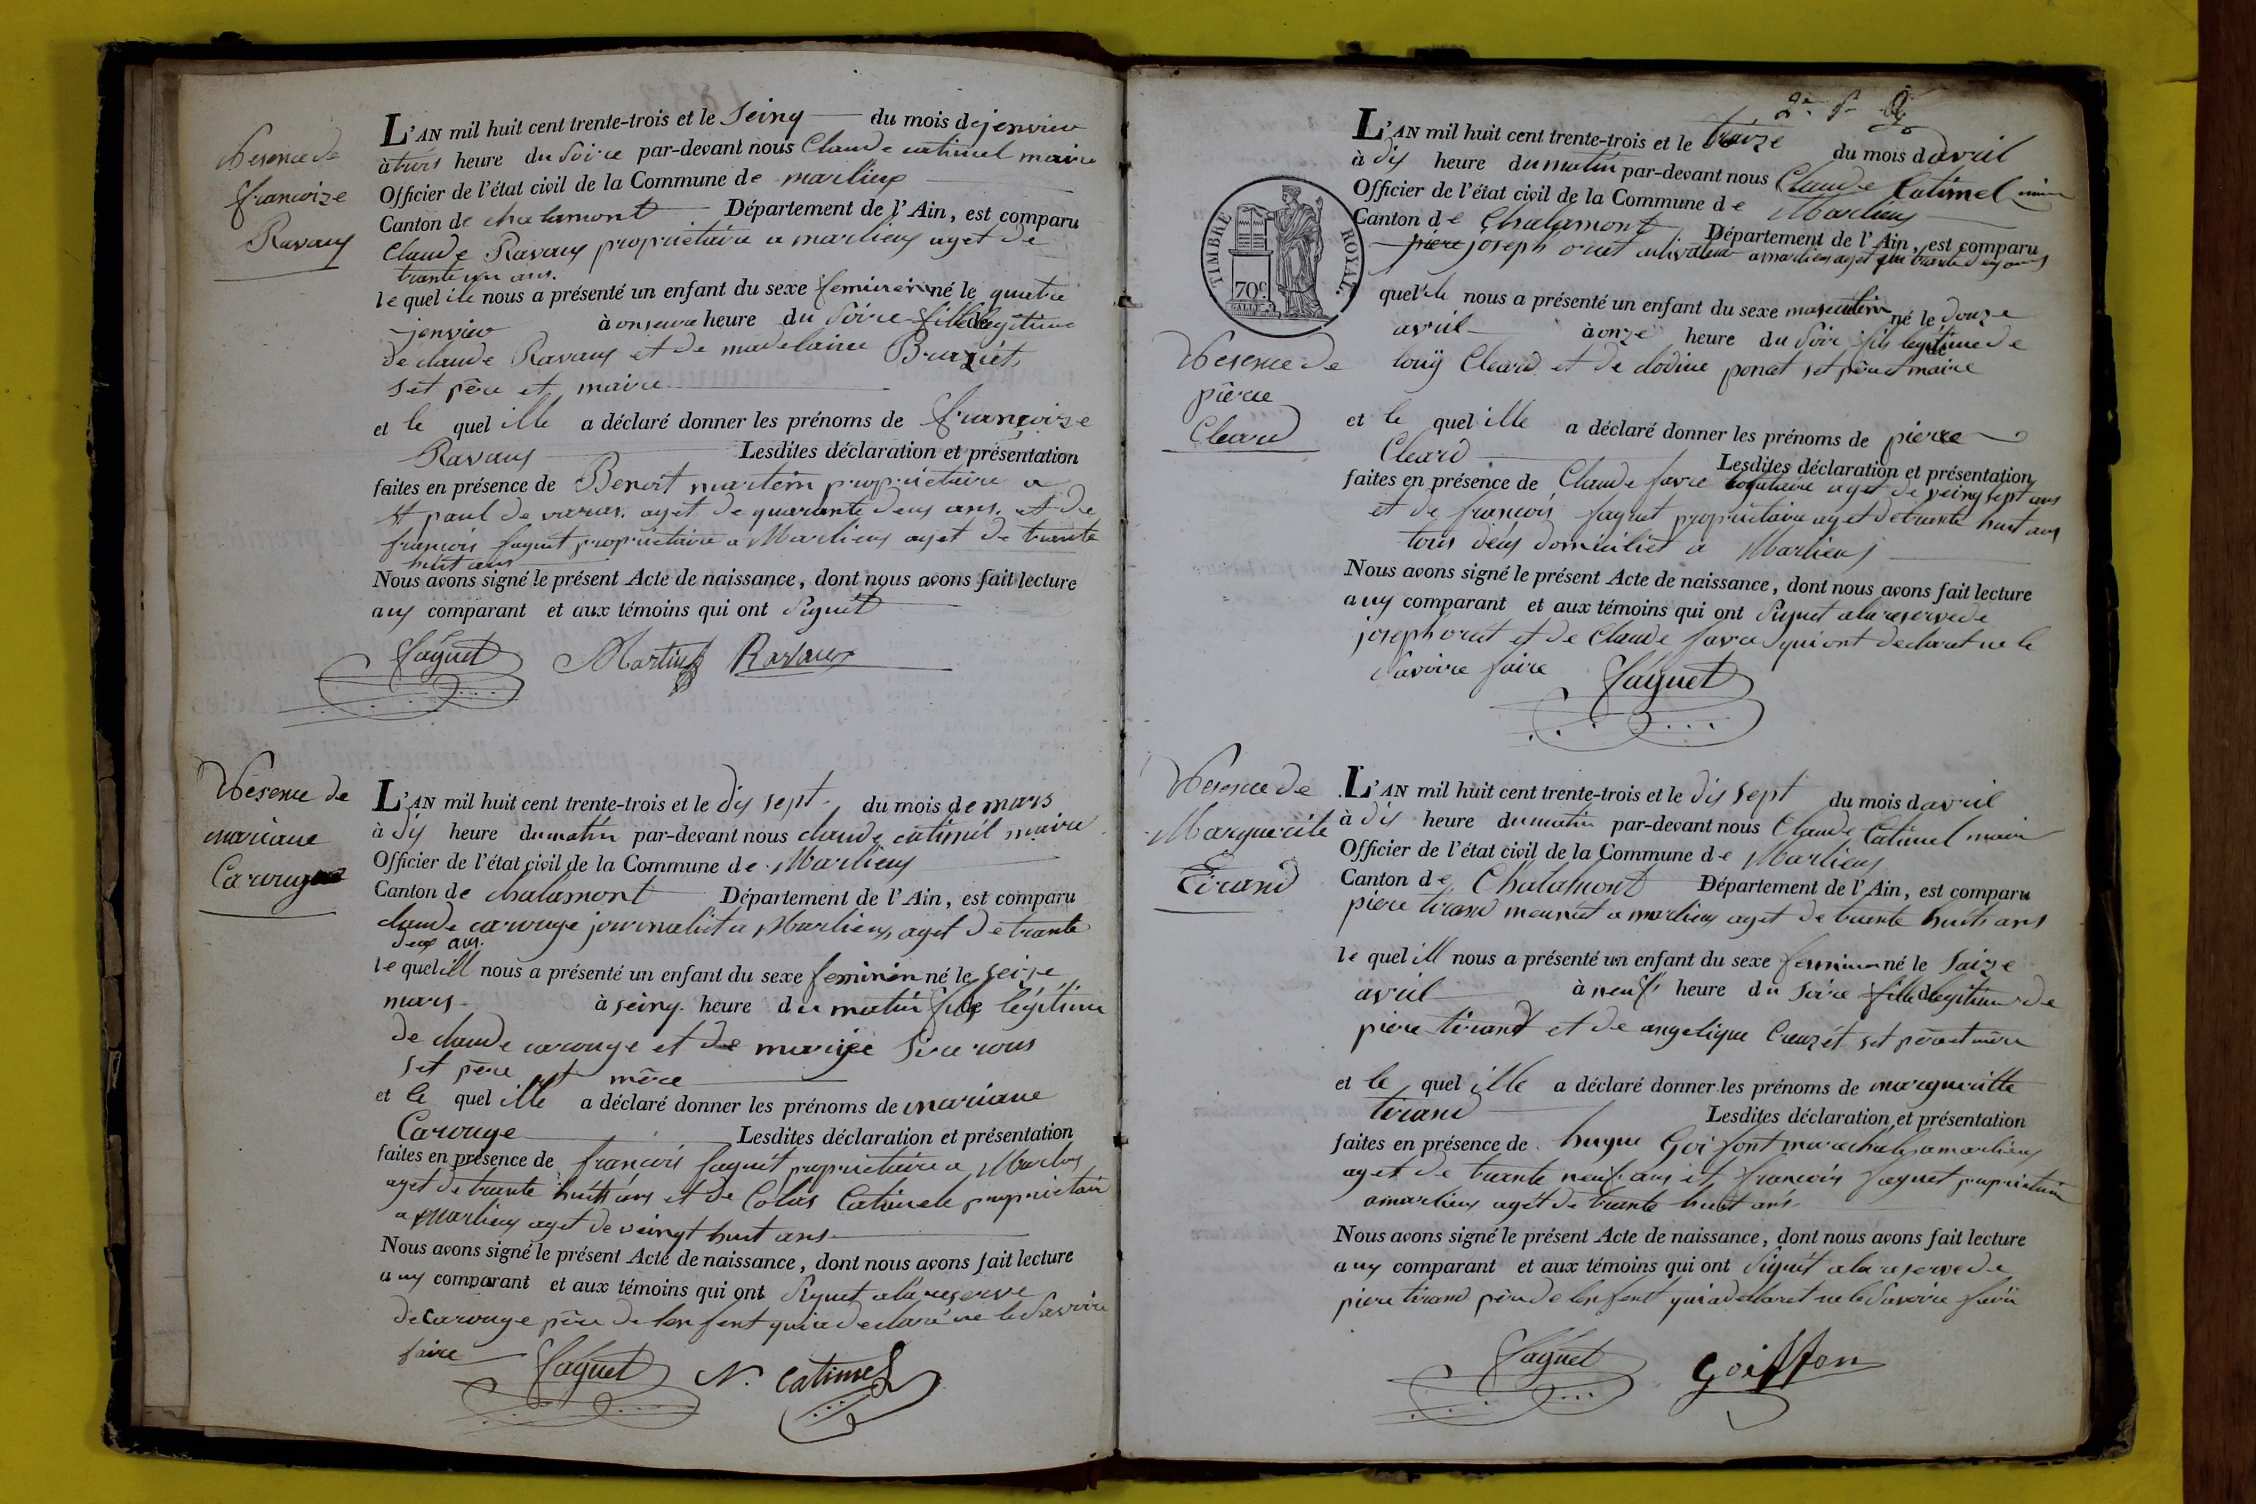 Nésence de
françoise
Ravaux
L'AN mil huit cent trente-trois et le seinq du mois de jenvier
à trois heure du soire par-devant nous Claude catimel maire
Officier de l'état civil de la Commune de marlieux
Canton de chalamont Département de l'Ain, est comparu
Claude Ravaux propriétaire a marlieux aget de
trante un ans.
le quel ile nous a présenté un enfant du sexe feminin né le quatre
jenvier à onse heure du soire fille légitime
de claude Ravaux et de madelaine Buaziét,
set père et maire
et le quel ille a déclaré donner les prénoms de françoise
Ravaux Lesdites déclaration et présentation
faites en présence de Benoit martin propriétaire a
st paul de varax. aget de quarante deux ans. et de
françois faguet propriétaire a Marlieux aget de trante
huit ans
Nous avons signé le présent Acte de naissance, dont nous avons fait lecture
aux comparant et aux témoins qui ont signét
faguet Martin Ravaux
Nésence de
mariane
Carouge
L'AN mil huit cent trente-trois et le dix sept du mois de mars
à dix heure du matin par-devant nous claude catimél maire
Officier de l'état civil de la Commune de Marlieux
Canton de chalamont Département de l'Ain, est comparu
claude carouge journaliet a Marlieux, aget de trante
deux ans.
le quel ill nous a présenté un enfant du sexe feminin né le seize
mars à seinq heure du matin fille légitime
de claude carouge et de marie
set père et mère
et le quel ille a déclaré donner les prénoms de mariane
Carouge Lesdites déclaration et présentation
faites en présence de françois faguét propriétaire a
aget de trante huit ans et de Colas Catimele propriétair
a Marlieux aget de veingt huit ans
Nous avons signé le présent Acte de naissance, dont nous avons fait lecture
aux comparant et aux témoins qui ont signet ala reserve
de carouge père de lenfent qui a declaré ne le savoire
faire
faguet N. catimel
2e f.
TIMBRE ROYAL.
70c.
L'AN mil huit cent trente-trois et le traize du mois d avril
à dix heure du matin par-devant nous Claude Catimel
Officier de l'état civil de la Commune de Marlieux
Canton de Chalamont Département de l'Ain, est comparu
joseph orset cultivateur a marlieux aget
quel ile nous a présenté un enfant du sexe masculin né le douze
avril à onze heure du soir fils legitime de
Nésence de
pierre
Cleard
louij Cleard et de clodine poncet set père et maire
et le quel ille a déclaré donner les prénoms de pierre
Cleard Lesdites déclaration et présentation
faites en présence de Claude favre aget de veingsept ans
et de françois faguet propriétaire aget de trante huit ans
tous deux domiciliet a Marlieux
Nous avons signé le présent Acte de naissance, dont nous avons fait lecture
aux comparant et aux témoins qui ont signet ala reserve de
joseph orset et de Claude favre qui ont declaret ne le
savoire faire faguet
Nésence de
Marguerite
Tirand
L'AN mil huit cent trente-trois et le dix sept du mois d avril
à dix heure du matin par-devant nous Claude Catimel maire
Officier de l'état civil de la Commune de Marlieux
Canton de Chalamont Département de l'Ain, est comparu
piere tirand meuniét a marlieux aget de trante huit ans
le quel ill nous a présenté un enfant du sexe feminin né le saize
avril à neuf heure du soire fille legitime de
piere tirand et de angelique Creuzét set père et mère
et le quel ille a déclaré donner les prénoms de margueritte
tirand Lesdites déclaration et présentation
faites en présence de hugue Goifont marechal a marlieux
aget de trante neuf ans et françois faguet propriétaire
a marlieux agét de trante huit ans
Nous avons signé le présent Acte de naissance, dont nous avons fait lecture
aux comparant et aux témoins qui ont signét ala reserve de
piere tirand père de lenfent qui a declaret ne le savoire faire
faguet Goiffon